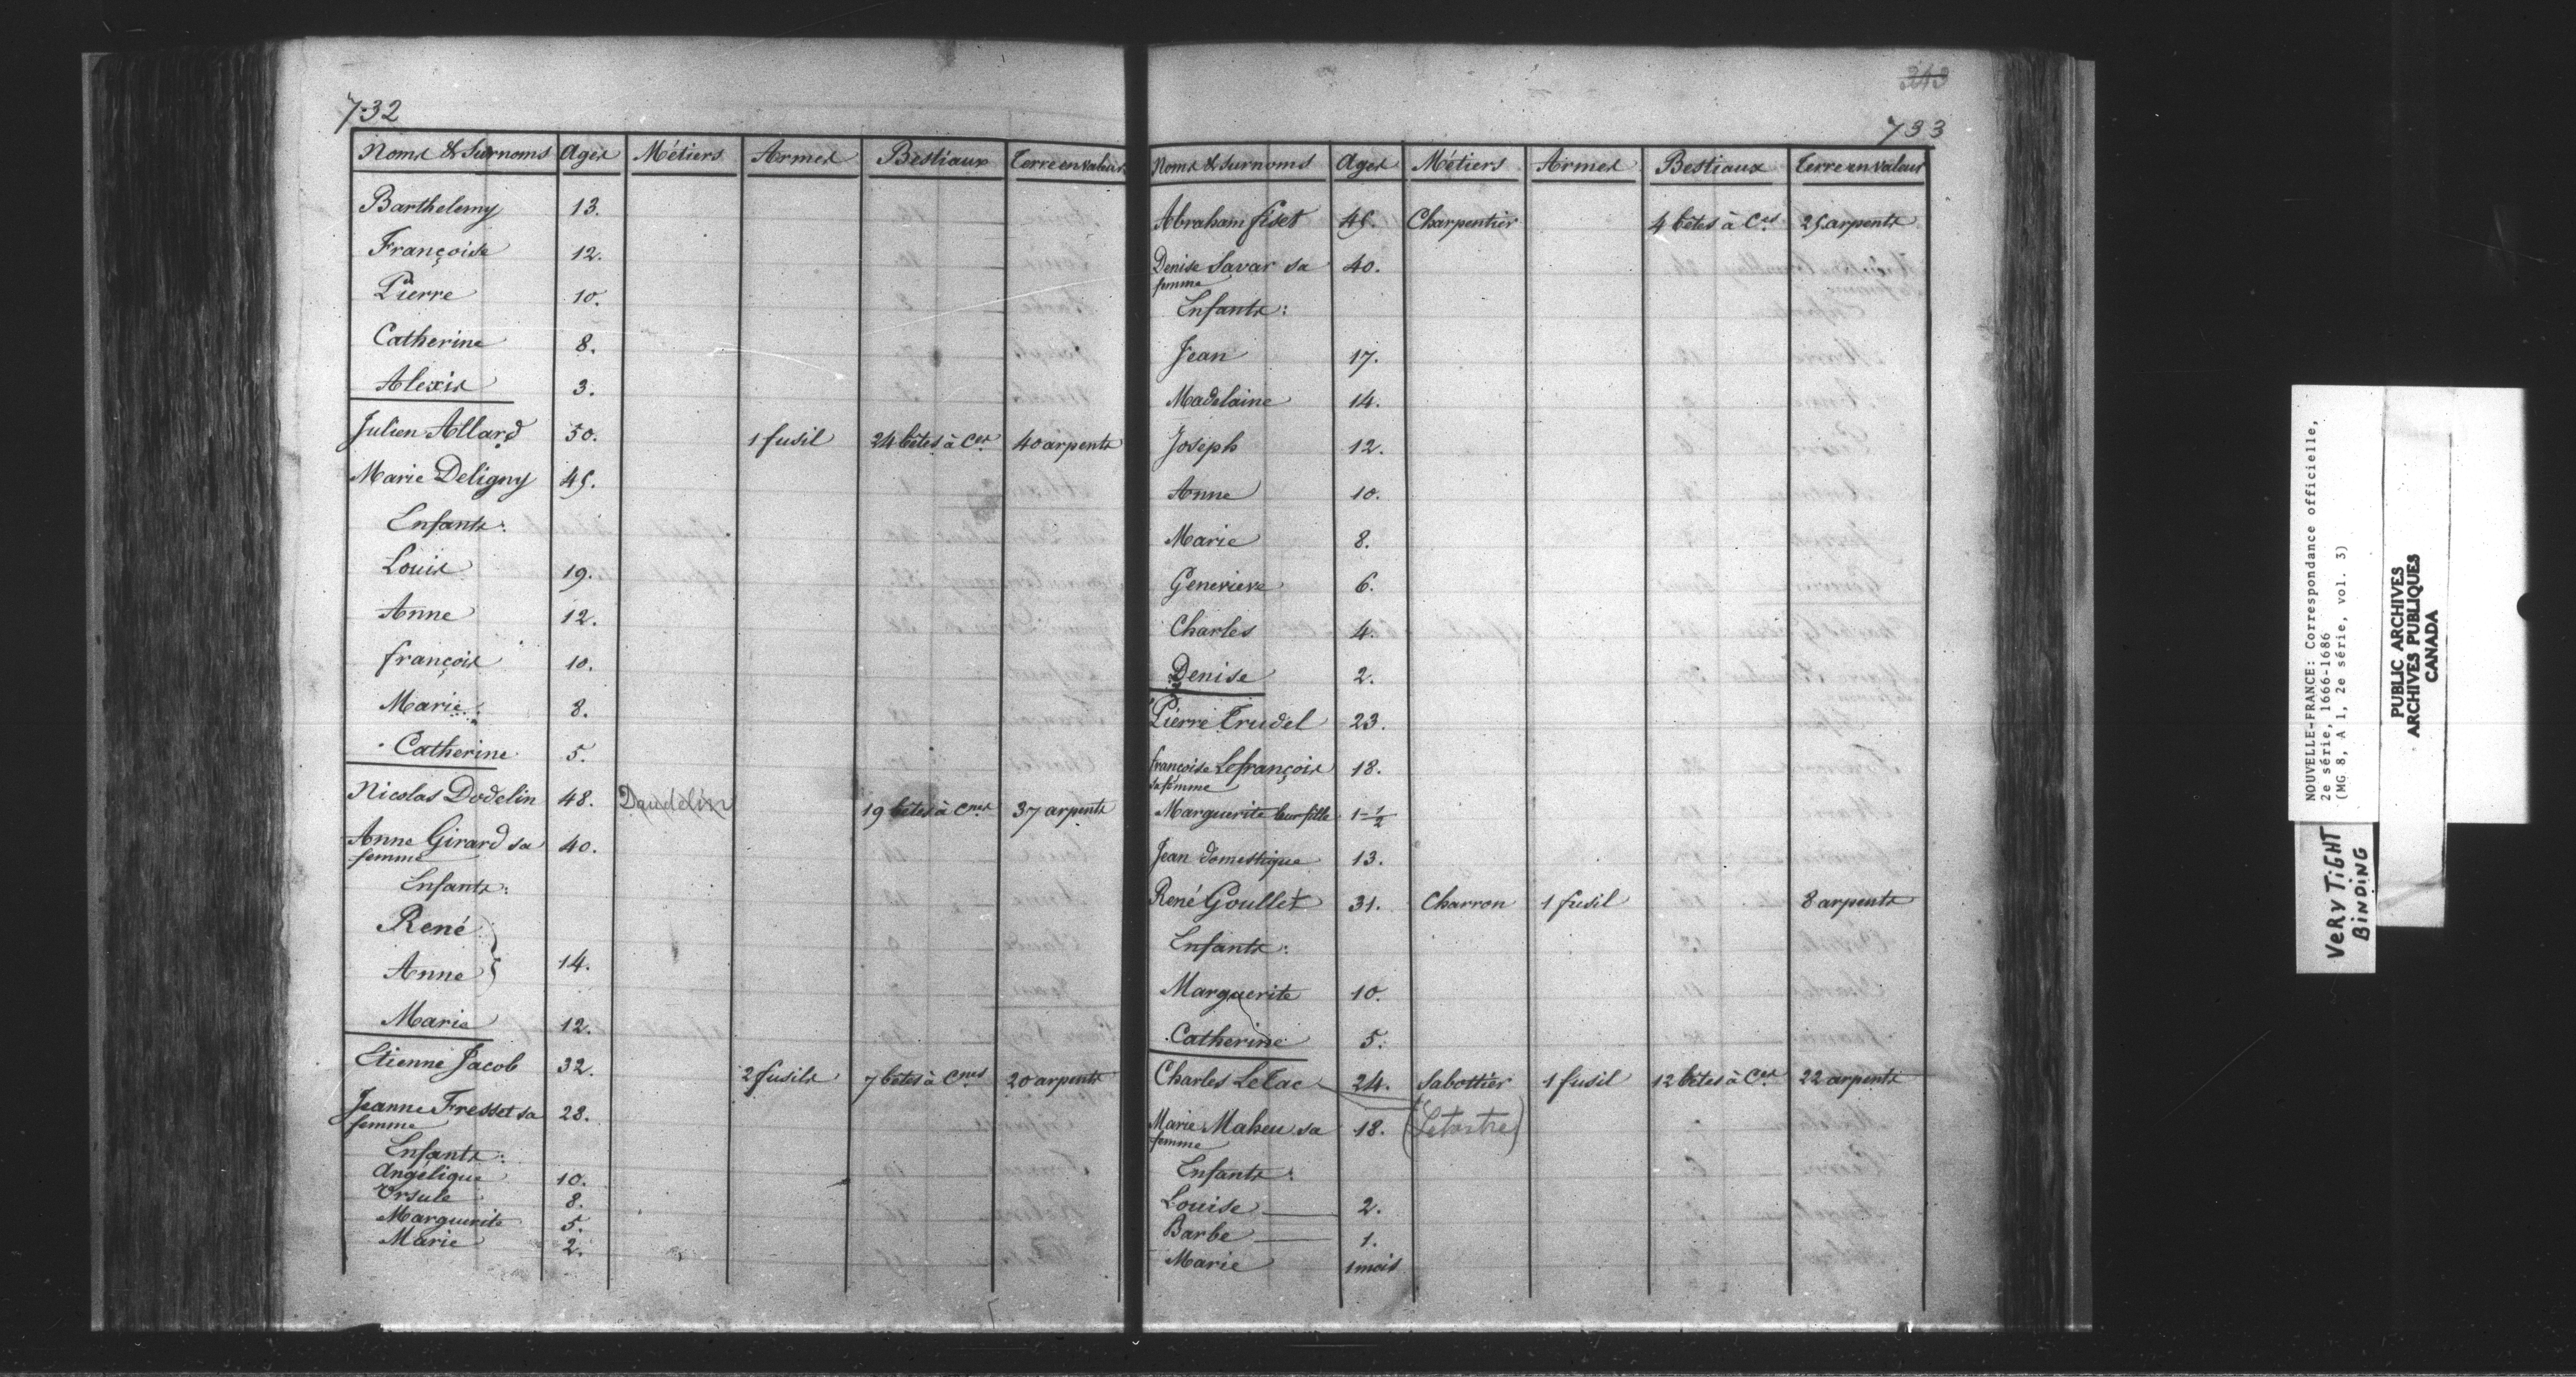 732
Noms & Surnoms Ages Métiers Armes Bestiaux Terre en valeur
Barthelemy 13.
Françoise 12.
Pierre 10.
Catherine 8.
Alexis 3.
Julien Allard 50. 1 fusil 24 bêtes à Ces 40 arpents
Marie Deligny 45.
Enfants:
Louis 19.
Anne 12.
françois 10.
Marie 8.
Catherine 5.
Nicolas Dodelin 48. Daudelin 19 bêtes à Cnes 37 arpents
Anne Girard sa femme 40.
Enfants:
René
Anne } 14.
Marie 12.
Etienne Jacob 32. 2 fusils 7 bêtes à Cnes 20 arpents
Jeanne Fresset sa femme 28.
Enfants:
Angélique 10.
Ursule 8.
Marguerite 5.
Marie 2.
343
733
Noms & Surnoms Ages Métiers Armes Bestiaux Terre en valeur
Abraham fiset 45. Charpentier 4 bêtes à Ces 25 arpents
Denise Savar sa femme 40.
Enfants:
Jean 17.
Madelaine 14.
Joseph 12.
Anne 10.
Marie 8.
Genevieve 6.
Charles 4.
Denise 2.
Pierre Trudel 23.
françoise Lefrançois sa femme 18.
Marguerite leur fille 1-1/2
Jean domestique 13.
René Goullet 31. Charron 1 fusil 8 arpents
Enfants:
Marguerite 10.
Catherine 5.
Charles Letac 24. Sabottier 1 fusil 12 bêtes à Ces 22 arpents
Marie Maheu sa femme 18. (Letartre)
Enfants:
Louise 2.
Barbe 1.
Marie 1 mois
NOUVELLE-FRANCE: Correspondance officielle,
2e série, 1666-1686
(MG 8, A 1, 2e série, vol. 3)
VERY TIGHT
BINDING
PUBLIC ARCHIVES
ARCHIVES PUBLIQUES
CANADA